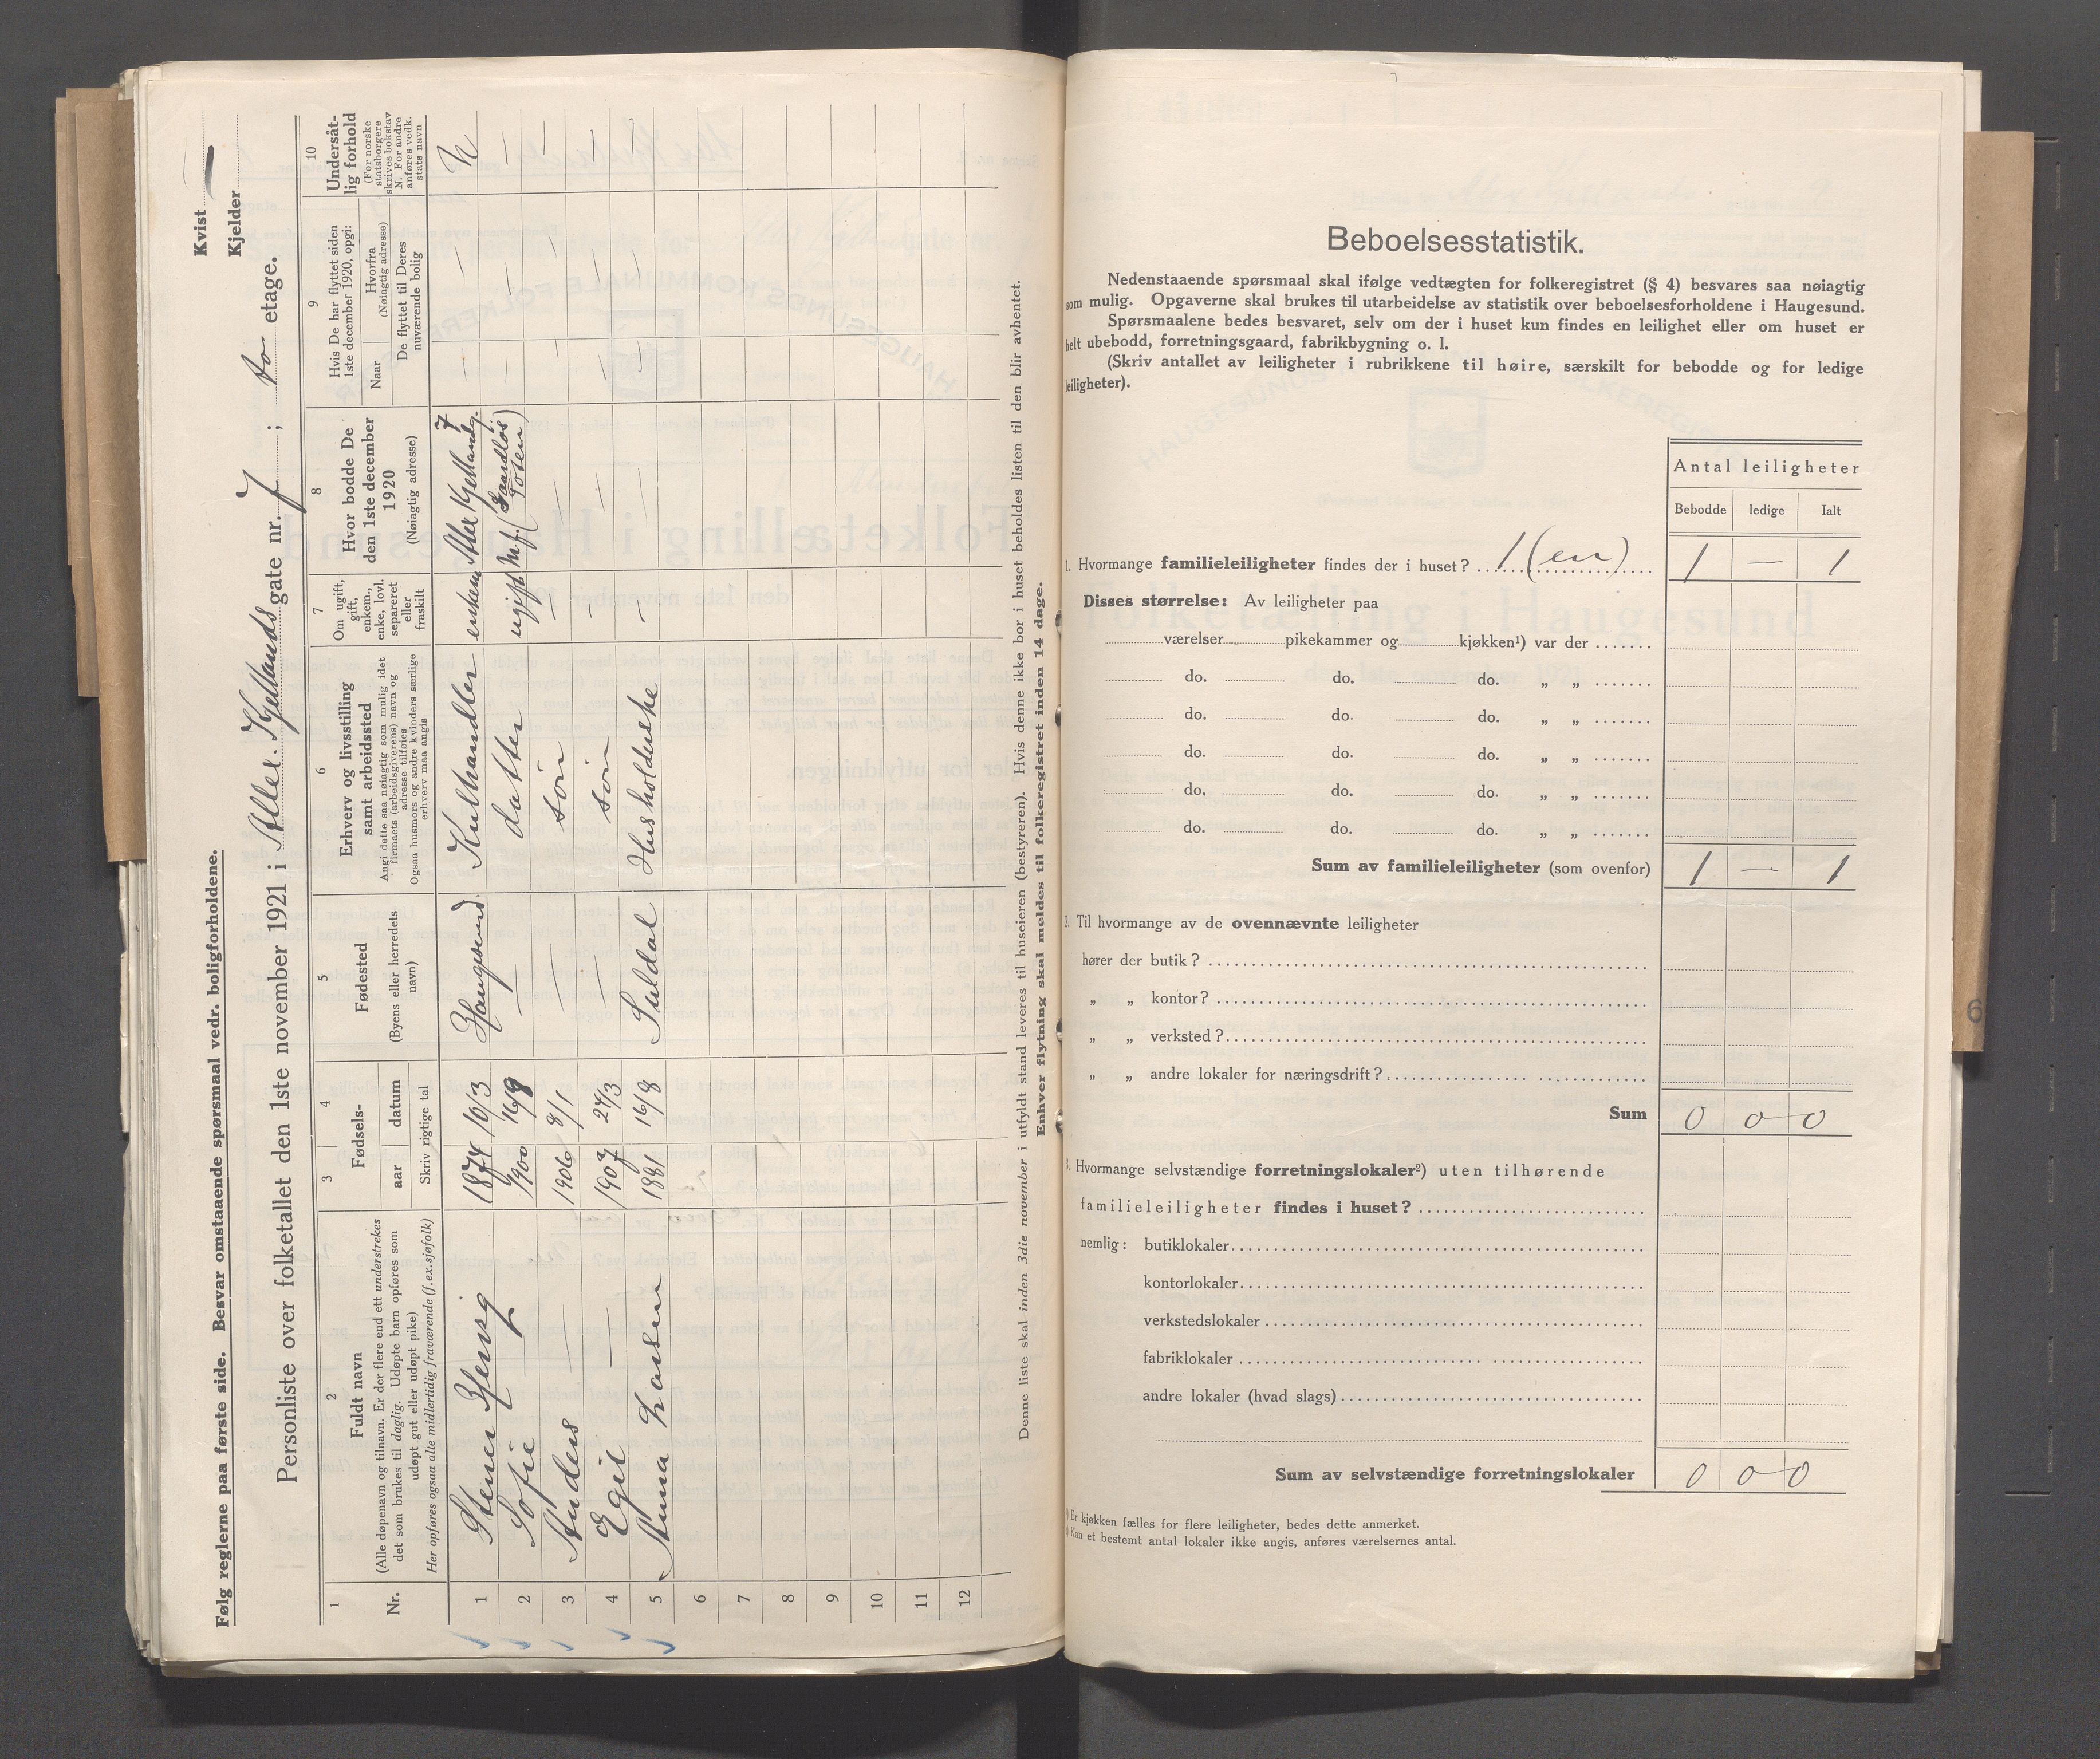 Følg reglerne paa første side. Besvar omstaaende spørsmaal vedr. boligforholdene.
Kvist —
Kjelder
Personliste over folketallet den 1ste november 1921 i Alex. Kjellands gate nr. 7 ; to etage.
1 2 3 4 5 6 7 8 9 10
Nr.
Fuldt navn
(Alle døpenavn og tilnavn. Er der flere end ett understrekes
det som brukes til daglig. Udøpte barn opføres som
udøpt gut eller udøpt pike)
Her opføres ogsaa alle midlertidig fraværende (f.ex.sjøfolk)
Fødsels-
aar datum
Skriv rigtige tal
Fødested
(Byens eller herredets
navn)
Erhverv og livsstilling
samt arbeidssted
Angi dette saa nøiagtig som mulig idet
firmaets (arbeidsgiverens) navn og
adresse tilføies
Ogsaa husmors og andre kvinders særlige
erhverv maa angis
Om ugift,
gift,
enkem.,
enke, lovl.
separeret
eller
fraskilt
Hvor bodde De
den 1ste december
1920
(Nøiagtig adresse)
Hvis De har flyttet siden
1ste december 1920, opgi:
Naar
Hvorfra
(Nøiagtig adresse)
De flyttet til Deres
nuværende bolig
Undersåt-
lig forhold
(For norske
statsborgere
skrives bokstav
N. For andre
anføres vedk.
stats navn
1 Stener Hervig 1874 10/3 Haugesund Kulhandler enkem Alex Kjellandg. 7 — — N
2 Sofie — 1900 16/8 — datter ugift — — —
3 Anders — 1906 9/1 — søn — — — — —
4 Egil — 1907 24/3 — søn — — — — —
5 Anna Larsen 1881 16/8 Suldal Husholderske — — — — —
6
7
8
9
10
11
12
Denne liste skal inden 3die november i utfyldt stand leveres til huseieren (bestyreren). Hvis denne ikke bor i huset beholdes listen til den blir avhentet.
Enhver flytning skal meldes til folkeregistret inden 14 dage.
Beboelsesstatistik.
Nedenstaaende spørsmaal skal ifølge vedtægten for folkeregistret (§ 4) besvares saa nøiagtig
som mulig. Opgaverne skal brukes til utarbeidelse av statistik over beboelsesforholdene i Haugesund.
Spørsmaalene bedes besvaret, selv om der i huset kun findes en leilighet eller om huset er
helt ubebodd, forretningsgaard, fabrikbygning o. l.
(Skriv antallet av leiligheter i rubrikkene til høire, særskilt for bebodde og for ledige
leiligheter).
Antal leiligheter
Bebodde ledige Ialt
1. Hvormange familieleiligheter findes der i huset? 1 (en) 1 — 1
Disses størrelse: Av leiligheter paa
værelser pikekammer og kjøkken¹) var der
do. do. do. „ „
do. do. do. „ „
do. do. do. „ „
do. do. do. „ „
do. do. do. „ „
Sum av familieleiligheter (som ovenfor) 1 — 1
2. Til hvormange av de ovennævnte leiligheter
hører der butik?
„ „ kontor?
„ „ verksted?
„ „ andre lokaler for næringsdrift?
Sum 0 0 0
Hvormange selvstændige forretningslokaler²) uten tilhørende
familieleiligheter findes i huset?
nemlig: butiklokaler
kontorlokaler
verkstedslokaler
fabriklokaler
andre lokaler (hvad slags)
Sum av selvstændige forretningslokaler 0 0 0
Er kjøkken fælles for flere leiligheter, bedes dette anmerket.
Kan et bestemt antal lokaler ikke angis, anføres værelsernes antal.
6